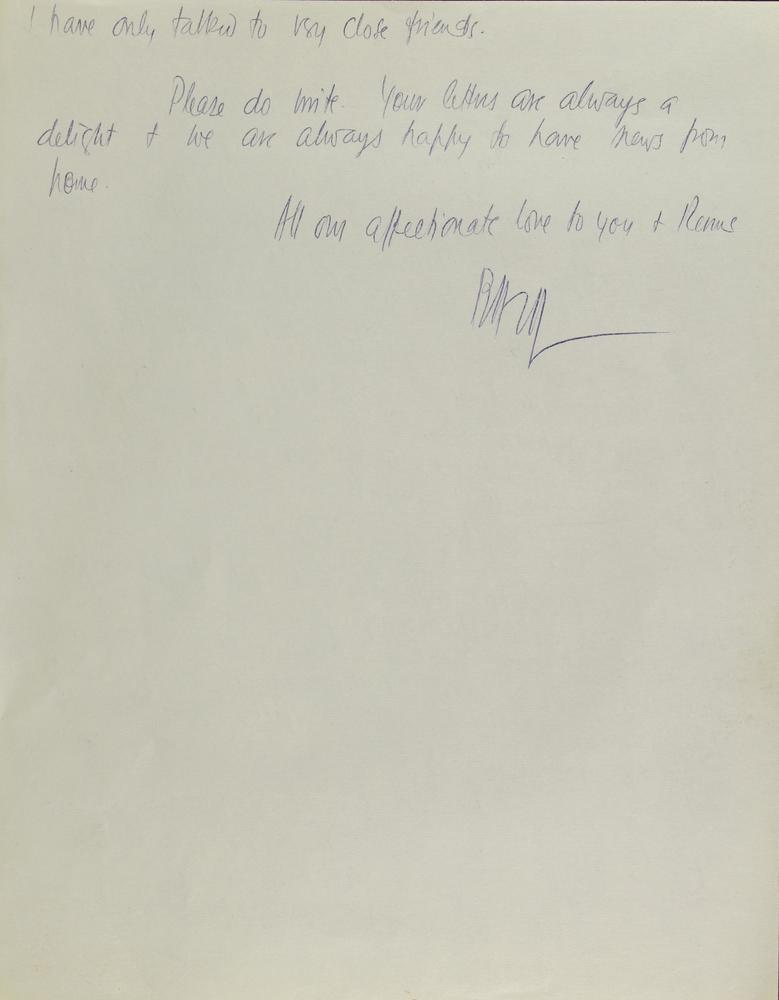 I have only talked to very close friends.
Please do write. Your letters are always a
delight & we are always happy to have news from
home.
All our affectionate love to you &